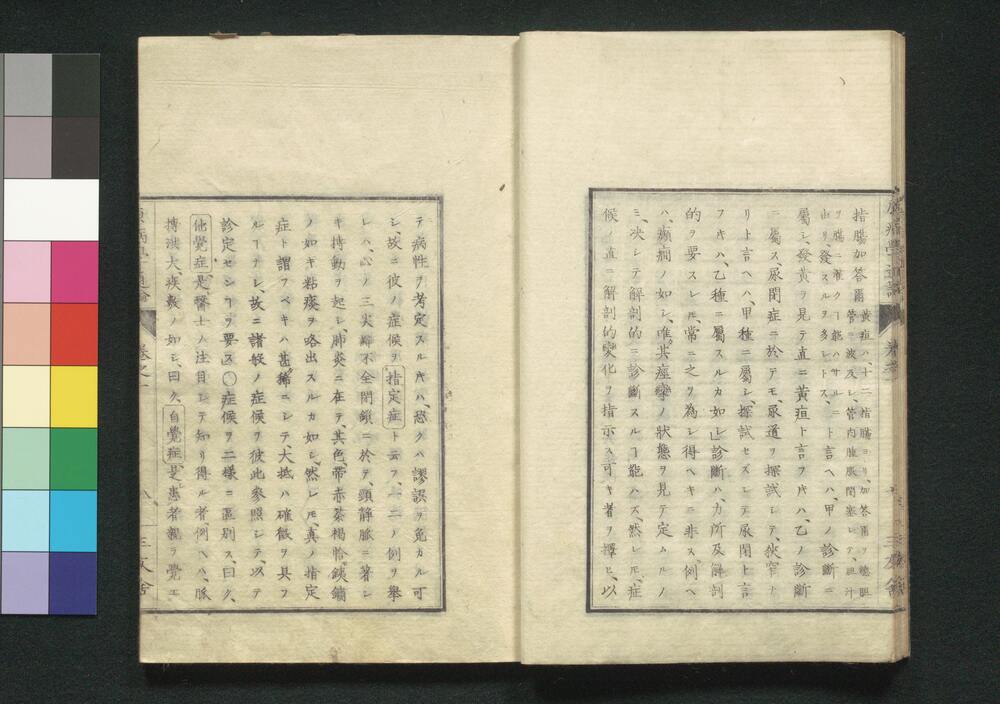 指腸加答爾黄疸ハ、十二指腸ヨリ、加答爾ヲ總胆
管ニ波及シ、管内腫脹閉塞シテ胆汁
ヲ腸ニ灌クヿ能ハサルニ
由リ、發スルヲ多シトス、ト言ヘハ、甲ノ診斷ニ
屬シ、發黄ヲ見テ直ニ黄疸ト言フ片ハ、乙ノ診斷
ニ屬ス、尿閉症ニ於テモ、尿道ヲ探試シテ、狹窄ナ
リト言ヘハ、甲種ニ屬シ、探試セズシテ尿閉ト言
フ片ハ、乙種ニ屬スルカ如シ」診斷ハ、力所及解剖
的ヲ要スレ𪜈、常ニ之ヲ為シ得ヘキニ非ス、例ヘ
ハ、癲癇ノ如シ、唯其痙攣ノ狀態ヲ見テ定ムルノ
ミ、决シテ解剖的ニ診斷スルヿ能ハス、然レ𪜈、症
候ノ直ニ解剖的變化ヲ指示ス可キ者ヲ擇ヒ、以
テ病性ヲ考定スル片ハ、恐クハ謬誤ヲ免カル可
シ、故ニ彼ノ症候ヲ指定症ト云フ、一二ノ例ヲ擧
レハ、心ノ三尖瓣不全閉鎖ニ於テ、頸静脈ニ著シ
キ搏動ヲ起シ、肺炎ニ在テ、其色帶赤茶褐恰モ鐵鏽
ノ如キ粘痰ヲ咯出スルカ如シ、然レ𪜈、真ノ指定
症ト謂フベキハ甚稀ニシテ、大抵ハ確徴ヲ具フ
ルヿナシ、故ニ諸般ノ症候ヲ彼此參照シテ、以テ
診定センヿヲ要ス〇症候ヲ二樣ニ區別ス、曰ク、
他覺症、是レ醫士ノ注目シテ知リ得ル者、例ヘハ、脈
搏洪大、疾數ノ如シ、曰ク、自覺症、是レ患者親ラ覺エ
卷之一
三友舍